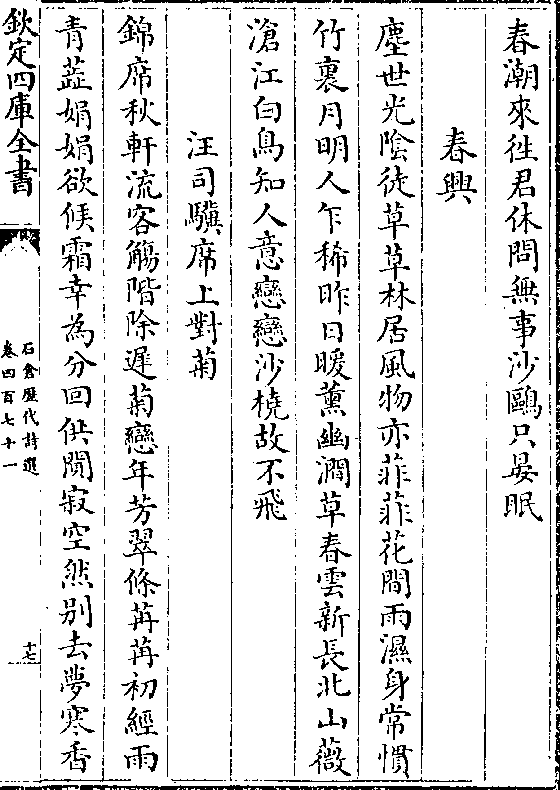 春潮來往君休問無事沙鷗只晏眠
春興
塵世光陰徒草草林居風物亦菲菲花間雨濕身常慣
竹裏月明人乍稀昨日暖薰幽澗草春雲新長北山薇
滄江白鳥知人意戀戀沙橈故不飛
汪司驥席上對菊
錦席秋軒流客觴階除遲菊戀年芳翠條苒苒初經雨
青蘂娟娟欲候霜幸為分回供閴寂空然别去夢寒香
欽定四庫全書
石倉歷代詩選
卷四百七十一
十七